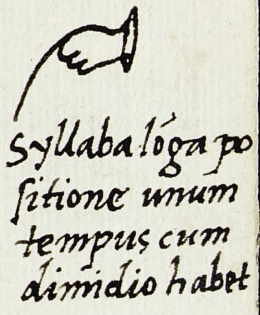 Syllaba lõga po
sitione unum
tempus cum
dimidio habet